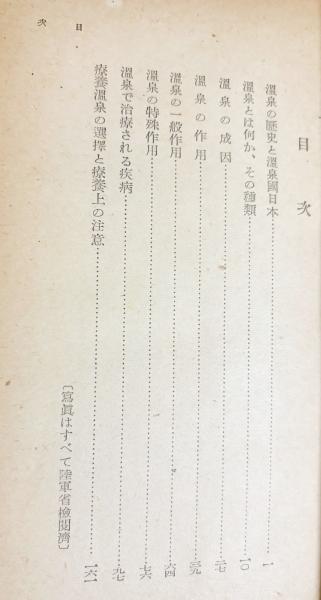 目次
目次
溫泉の歷史と溫泉國日本……一
溫泉とは何か、その種類……一〇
溫泉の成因……二七
溫泉の作用……三九
溫泉の一般作用……六四
溫泉の特殊作用……七六
溫泉で治療される疾病……九七
療養溫泉の選擇と療養上の注意……一六一
〔寫眞はすべて陸軍省檢閱濟〕